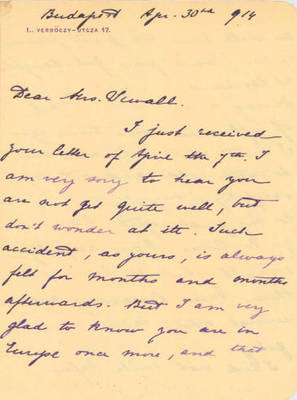 Budapest Apr. 30th 914
I., VERBŐCZY-UTCZA 17.
Dear Mrs.
I just received
your letter of Apire the 7th. I
am very sorry to hear you
are not yet quite well, but
don't wonder at it. Such
accident, as yours, is always
felt for months and months
afterwards. But I am very
glad to know you are in
Europe once more, and that